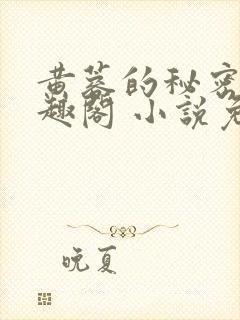 黄蓉的秘密
趣阁 小说免
晚夏